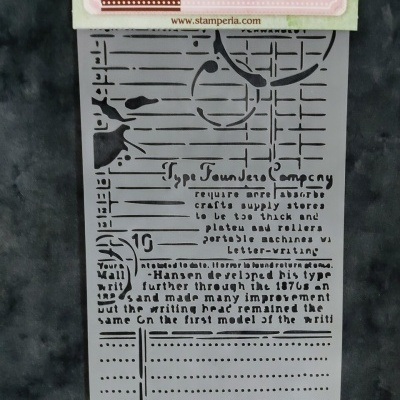 www.stamperia.com
Type Founders Company
require more absorbe
crafts supply stores
to be too thick and
plateu and rollers
portable machines wi
Letter-writing
10
Yours
Mall -Hansen developed his type
writ further through the 1870s an
and made many improvement
but the writing head remained the
same On the first model of the writi